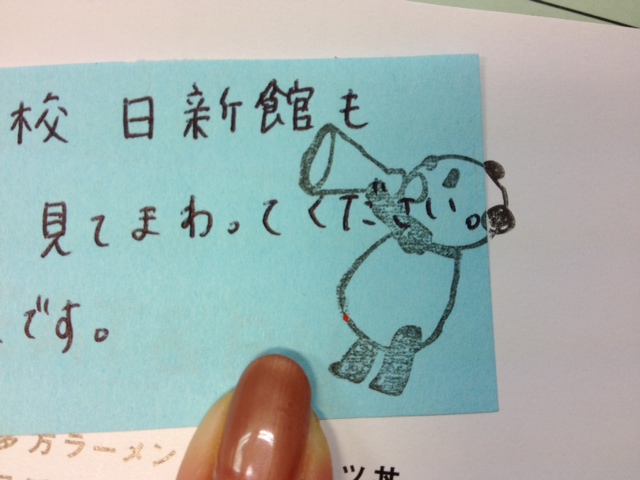 校 日新館も
見てまわってください。
です。
多万ラーメン
ツ丼